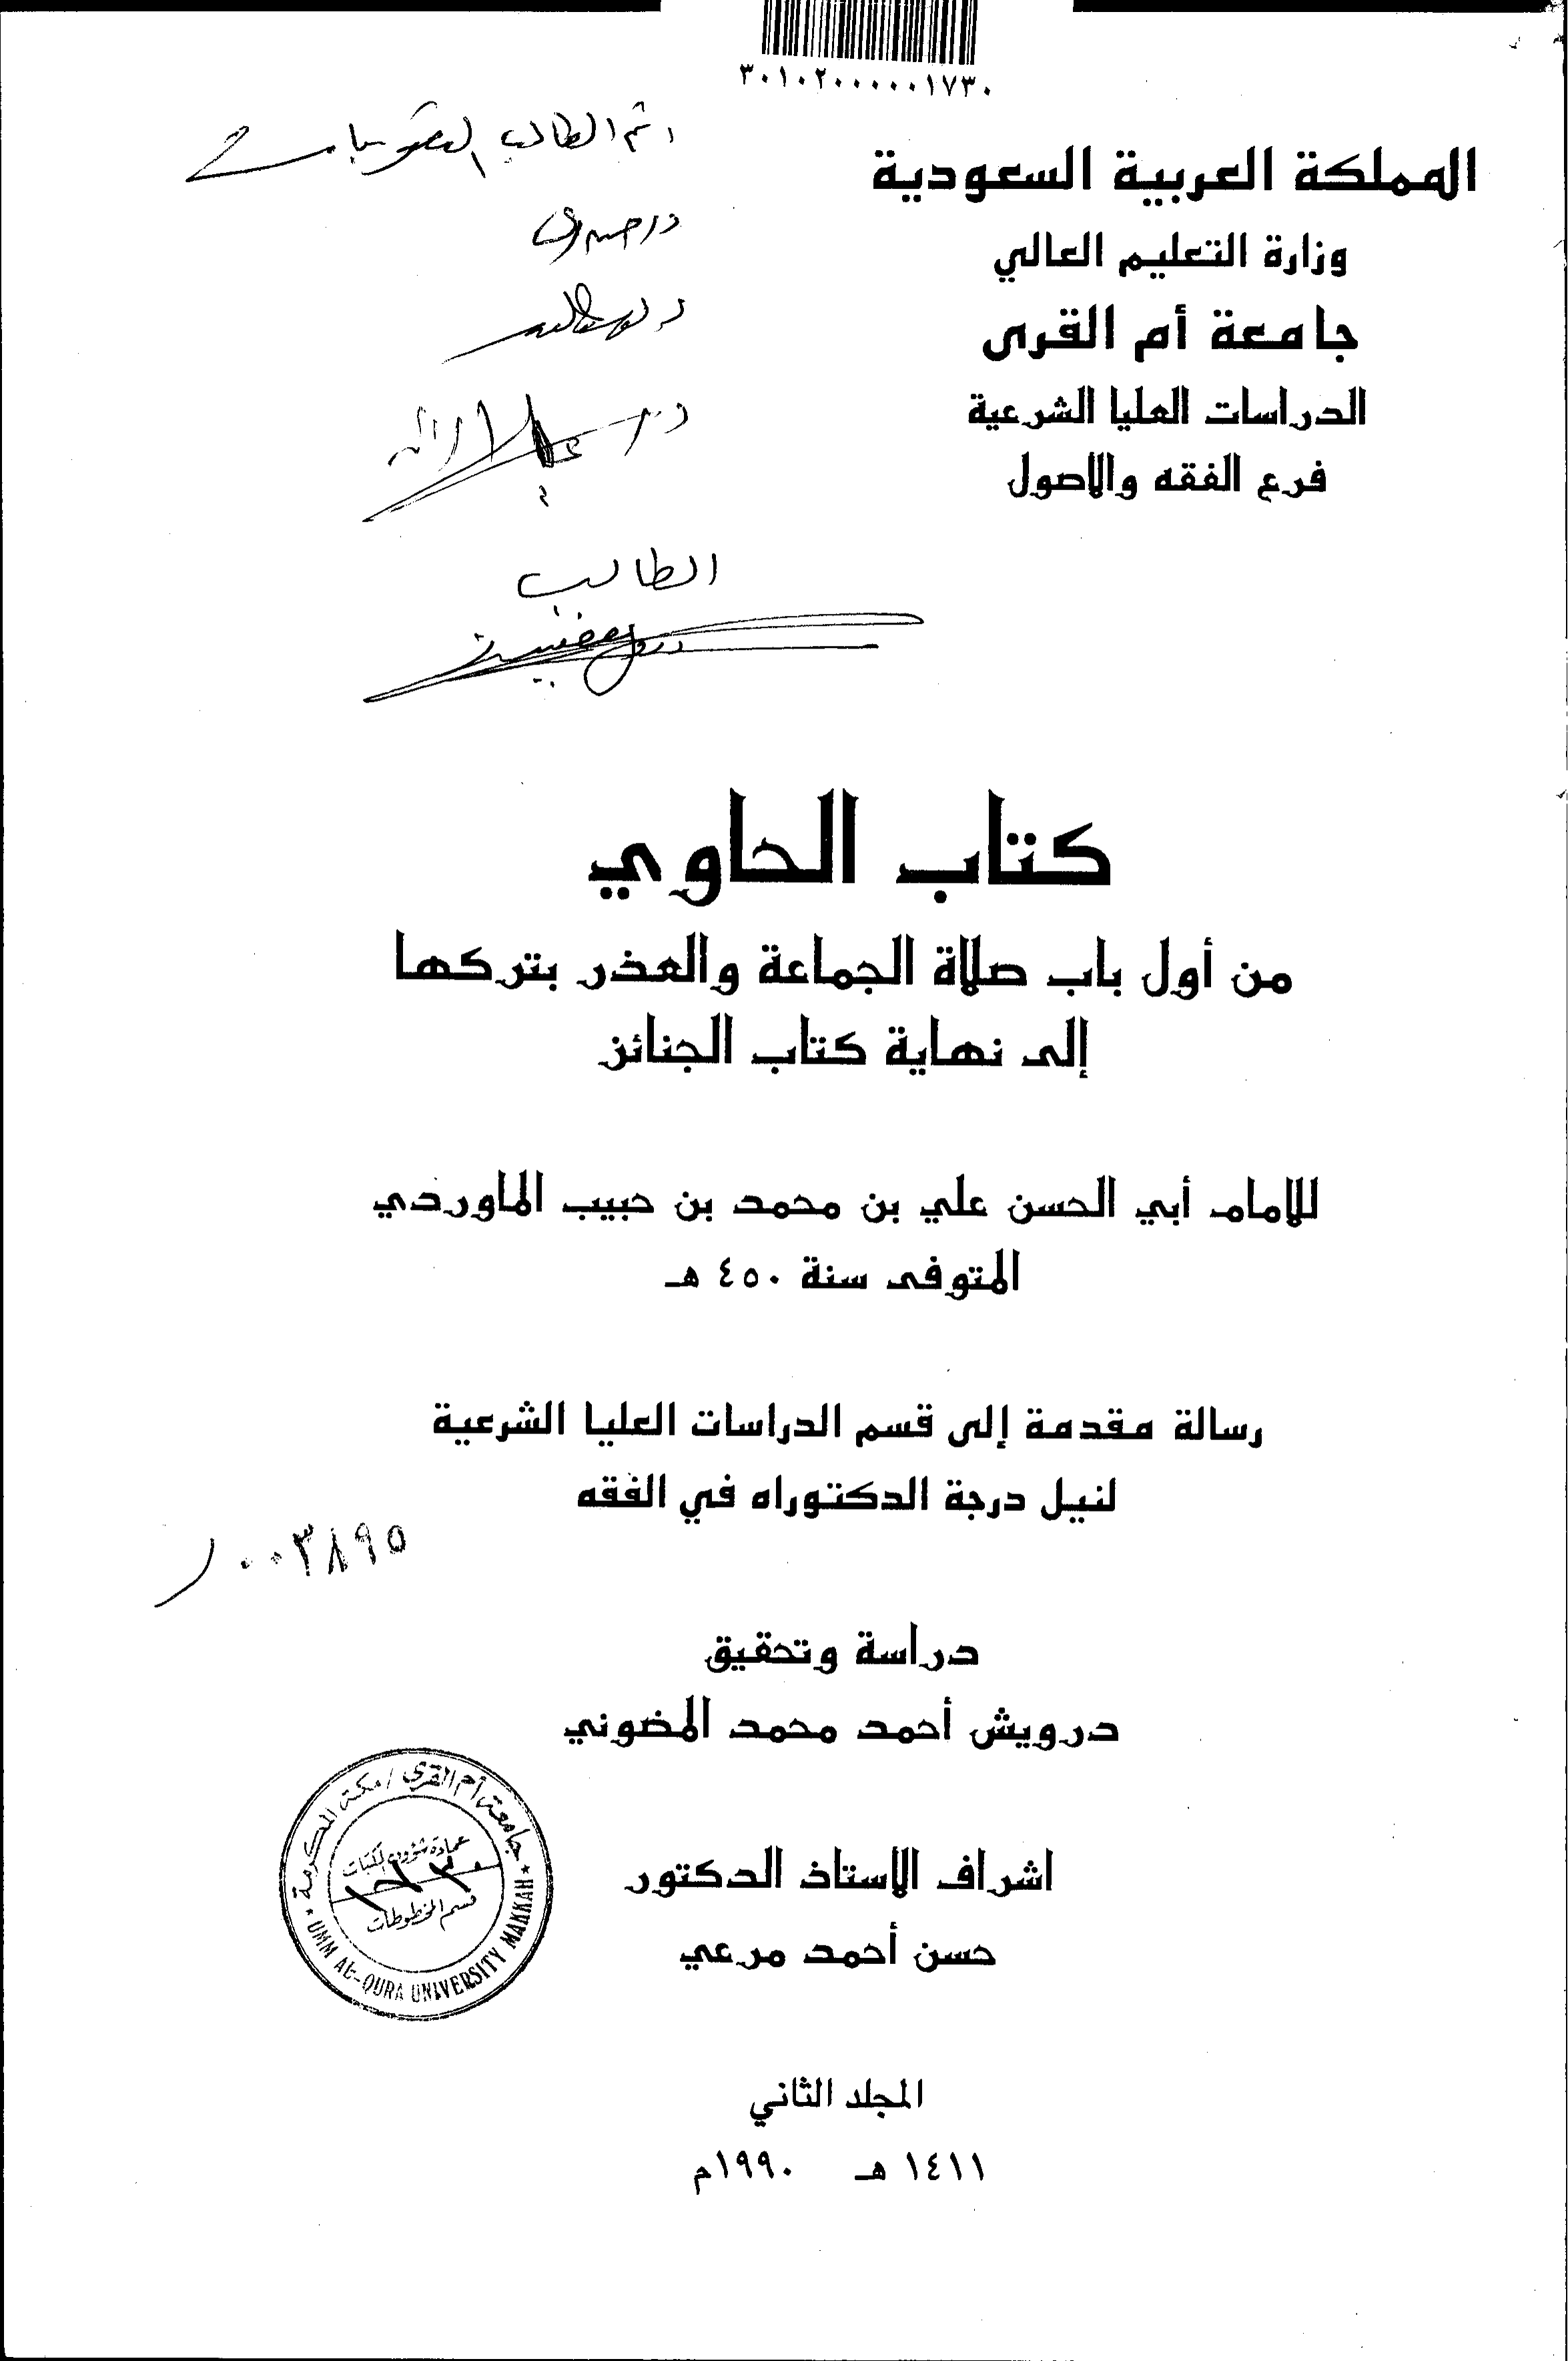 ٣٠١٠٢٠٠٠٠٠١٧٣٠
المملكة العربية السعودية
وزارة التعليم العالي
جامعة أم القرى
الدراسات العليا الشرعية
فرع الفقه والاصول
اتم الطالب التصويبات
الطالب
كتاب الحاوي
من أول باب صلاة الجماعة والعذر بتركها
إلى نهاية كتاب الجنائز
للامام أبي الحسن علي بن محمد بن حبيب الماوردي
المتوفى سنة ٤٥٠ هـ
رسالة مقدمة إلى قسم الدراسات العليا الشرعية
لنيل درجة الدكتوراه في الفقه
٠٠٣٨٩٥
دراسة وتحقيق
درويش أحمد محمد المضوني
جامعة أم القرى / مكة المكرمة
عمادة شؤون المكتبات
١٧٣٠
قسم المخطوطات
UMM AL-QURA UNIVERSITY MAKKAH
اشراف الأستاذ الدكتور
حسن أحمد مرعي
المجلد الثاني
١٤١١ هـ ١٩٩٠م